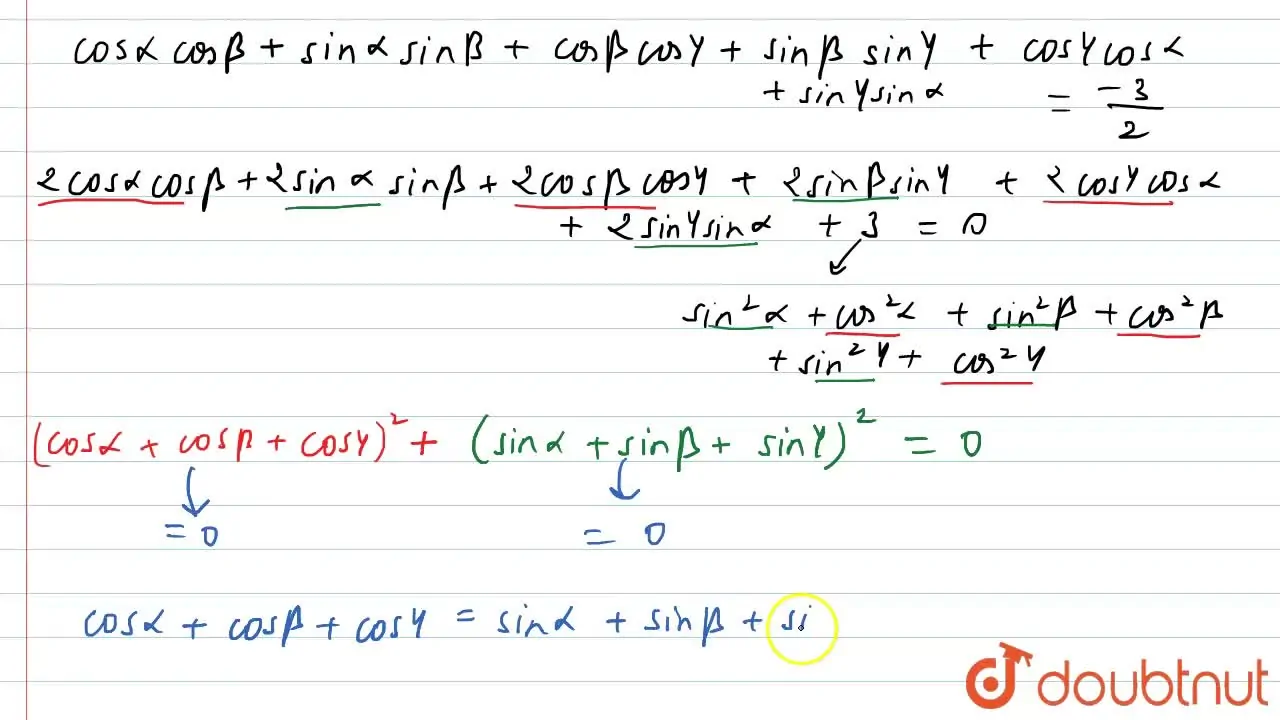 cosα cosβ + sinα sinβ + cosβ cosγ + sinβ sinγ + cosγ cosα
+ sinγ sinα = -3/2
2cosα cosβ + 2sinα sinβ + 2cosβ cosγ + 2sinβ sinγ + 2cosγ cosα
+ 2sinγ sinα + 3 = 0
sin²α + cos²α + sin²β + cos²β
+ sin²γ + cos²γ
(cosα + cosβ + cosγ)² + (sinα + sinβ + sinγ)² = 0
= 0 = 0
cosα + cosβ + cosγ = sinα + sinβ + si
doubtnut